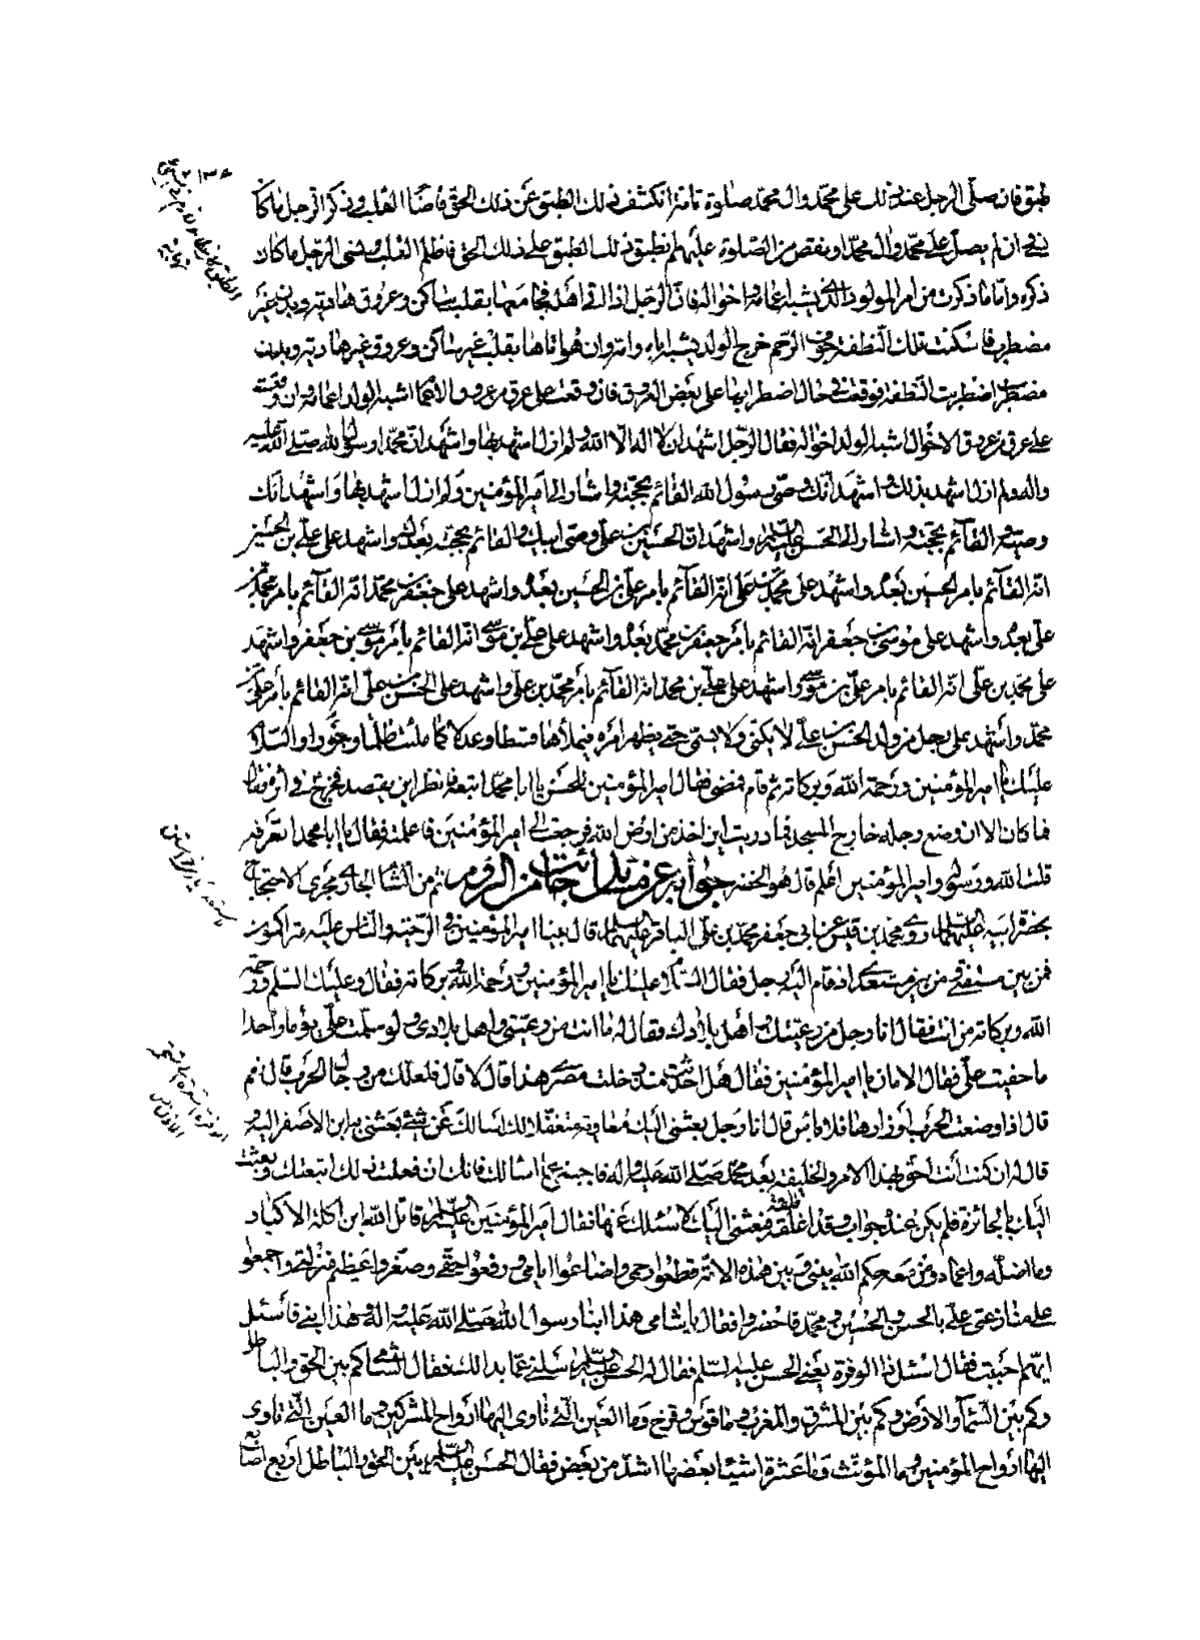 طبق فان صلّى الرجل عند ذلك على محمّد وال محمّد صلوة تامة انكشف ذلك الطبق عن ذلك الحق فاضاء القلب وذكر الرجل ما كان
نسي وان لم يصلّ على محمّد وال محمّد او نقص من الصّلوة عليهم انطبق ذلك الطبق على ذلك الحق فاظلم القلب ونسى الرجل ما كان
ذكره وامّا ما ذكرت من امر المولود الّذى يشبه اعمامه واخواله فانّ الرجل اذا اتى اهله فجامعها بقلب ساكن وعروق هادئة وبدن غير
مضطرب فاسكنت تلك النّطفة جوف الرّحم خرج الولد يشبه اباه وامّه وان هو اتاها بقلب غير ساكن وعروق غير هادئة وبدن
مضطرب اضطربت النّطفة فوقعت فى حال اضطرابها على بعض العروق فان وقعت على عرق من عروق الاعمام اشبه الولد اعمامه وان وقعت
على عرق من عروق الاخوال اشبه الولد اخواله فقال الرّجل اشهد ان لا اله الّا الله ولم ازل اشهد بها واشهد انّ محمّدا رسول الله صلّى الله عليه
واله ولم ازل اشهد بذلك واشهد انّك وصىّ رسول الله القائم بحجّته واشار الى امير المؤمنين ولم ازل اشهد بها واشهد انّك
وصيّه والقائم بحجّته واشار الى الحسن عليه السّلم واشهد انّ الحسين بن علىّ وصىّ ابيك والقائم بحجّته بعدك واشهد على علىّ بن الحسين
انّه القائم بامر الحسين بعده واشهد على محمّد بن علىّ انّه القائم بامر علىّ بن الحسين بعده واشهد على جعفر بن محمّد انّه القائم بامر محمّد بن
علىّ بعده واشهد على موسى بن جعفر انّه القائم بامر جعفر بن محمّد بعده واشهد على علىّ بن موسى انّه القائم بامر موسى بن جعفر واشهد
على محمّد بن علىّ انّه القائم بامر علىّ بن موسى واشهد على علىّ بن محمّد انّه القائم بامر محمّد بن علىّ واشهد على الحسن بن علىّ انّه القائم بامر علىّ بن
محمّد واشهد على رجل من ولد الحسن بن علىّ لا يكنّى ولا يسمّى حتّى يظهر امره فيملأها قسطا وعدلا كما ملئت ظلما وجورا والسّلام
عليك يا امير المؤمنين ورحمة الله وبركاته ثمّ قام فمضى فقال امير المؤمنين للحسن يا ابا محمّد اتبعه فانظر اين يقصد فخرج فى اثره فقال
فما كان الّا ان وضع رجله خارج المسجد فما دريت اين اخذ من ارض الله فرجعت الى امير المؤمنين فاعلمته فقال يا ابا محمد اتعرفه
قلت الله ورسوله وامير المؤمنين اعلم قال هو الخضر جوابه عن مسائل جاءت من الروم ثم من الشام الجارى مجرى الاحتجاج
بحضرة ابيه عليهما السّلم روى محمّد بن قيس عن ابى جعفر محمّد بن علىّ الباقر عليهما السّلم قال بينا امير المؤمنين فى الرّحبة والنّاس عليه متراكمون
فمن بين مستفتى ومن بين مستعدى اذ قام اليه رجل فقال السّلام عليك يا امير المؤمنين ورحمة الله وبركاته فقال وعليك السّلم ورحمة
الله وبركاته من انت فقال انا رجل من رعيّتك واهل بلادك فقال له ما انت من رعيّتى واهل بلادى ولو سلّمت علىّ يوما واحدا
ما خفيت علىّ فقال الامان يا امير المؤمنين فقال هل احدثت منذ دخلت مصرى هذا قال لا قال فلعلّك من رجال الحرب قال نعم
قال اذا وضعت الحرب اوزارها فلا بأس قال انا رجل بعثنى اليك معاوية متغفّلا لك اسالك عن شىء بعثنى به ابن الاصفر اليه
قال له ان كنت انت احق بهذا الامر والخليفة بعد محمّد صلّى الله عليه واله فاجبنى عمّا اسالك فانّك ان فعلت ذلك اتبعتك وبعثت
اليك بالجائزة فلم يكن عنده جواب وقد اقلقه فبعثنى اليك لاسئلك عنها فقال امير المؤمنين عليه السّلم قاتل الله ابن اكلة الاكباد
وما اضلّه واعماه ومن معه حكم الله بينى وبين هذه الامّة قطعوا رحمى واضاعوا ايامى ودفعوا حقّى وصغّروا عظيم منزلتى واجمعوا
على منازعتى علىّ بالحسن والحسين ومحمّد فاحضروا فقال يا شامى هذان ابنا رسول الله صلّى الله عليه واله وهذا ابنى فاسئل
ايّهم احببت فقال اسئل ذا الوفرة يعنى الحسن عليه السّلم فقال له الحسن عليه السّلم سلنى عمّا بدا لك فقال الشّامى كم بين الحق والباطل
وكم بين السّماء والارض وكم بين المشرق والمغرب وما قوس قزح وما العين الّتى تاوى اليها ارواح المشركين وما العين الّتى تاوى
اليها ارواح المؤمنين وما المؤنّث وما عشرة اشياء بعضها اشدّ من بعض فقال الحسن عليه السّلم بين الحق والباطل اربع اصابع